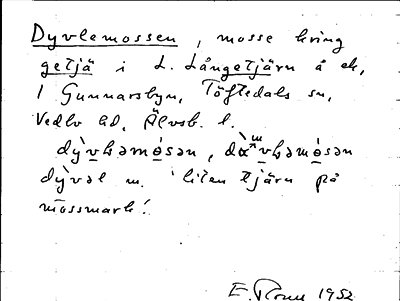 Dyvlemossen, mosse kring
getjä i L. Långetjärn å ek,
1 Gunnarsbyn, Töftedals sn,
Vedbo hd, Älvsb. l.
dỳvləmósən,
dỳvəl m. 'liten tjärn på
mossmark'.
E. 1952